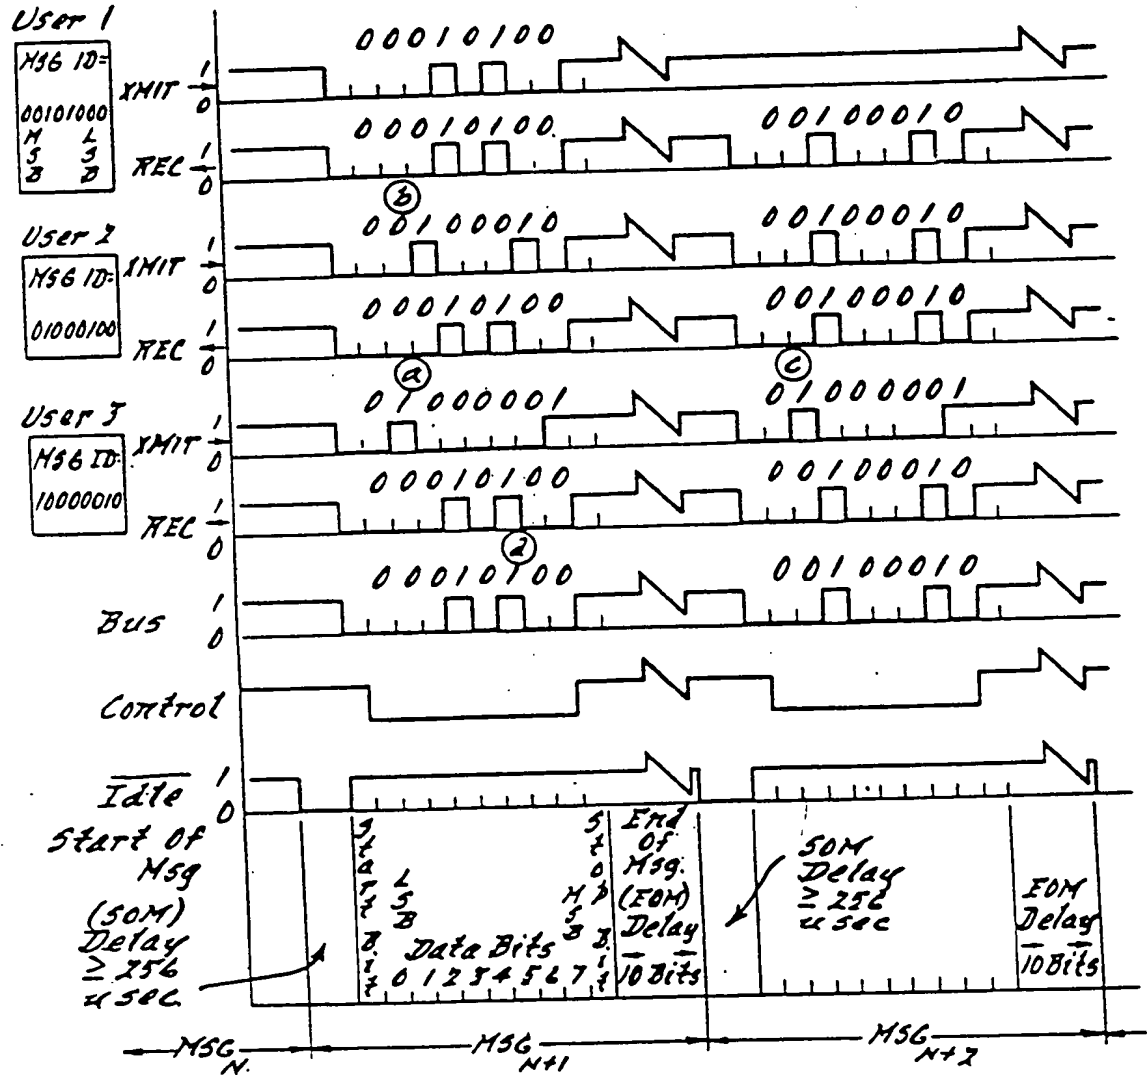 User 1
MSG ID=
00101000
M L
S S
B B
XMIT
1
0
00010100
REC
1
0
00010100
00100010
b
User 2
MSG ID=
01000100
XMIT
1
0
00100010
00100010
REC
1
0
00010100
00100010
a
c
User 3
MSG ID:
10000010
XMIT
1
0
01000001
01000001
REC
1
0
00010100
00100010
d
Bus
1
0
00010100
00100010
Control
Idle
1
0
Start Of
Msg
(SOM)
Delay
≥ 256
u sec.
Start Bit
LSB
Data Bits
0 1 2 3 4 5 6 7
MSB
Stop Bit
End
Of
Msg.
(EOM)
Delay
10 Bits
SOM
Delay
≥ 256
u sec
EOM
Delay
10 Bits
MSG N.
MSG N+1
MSG N+2